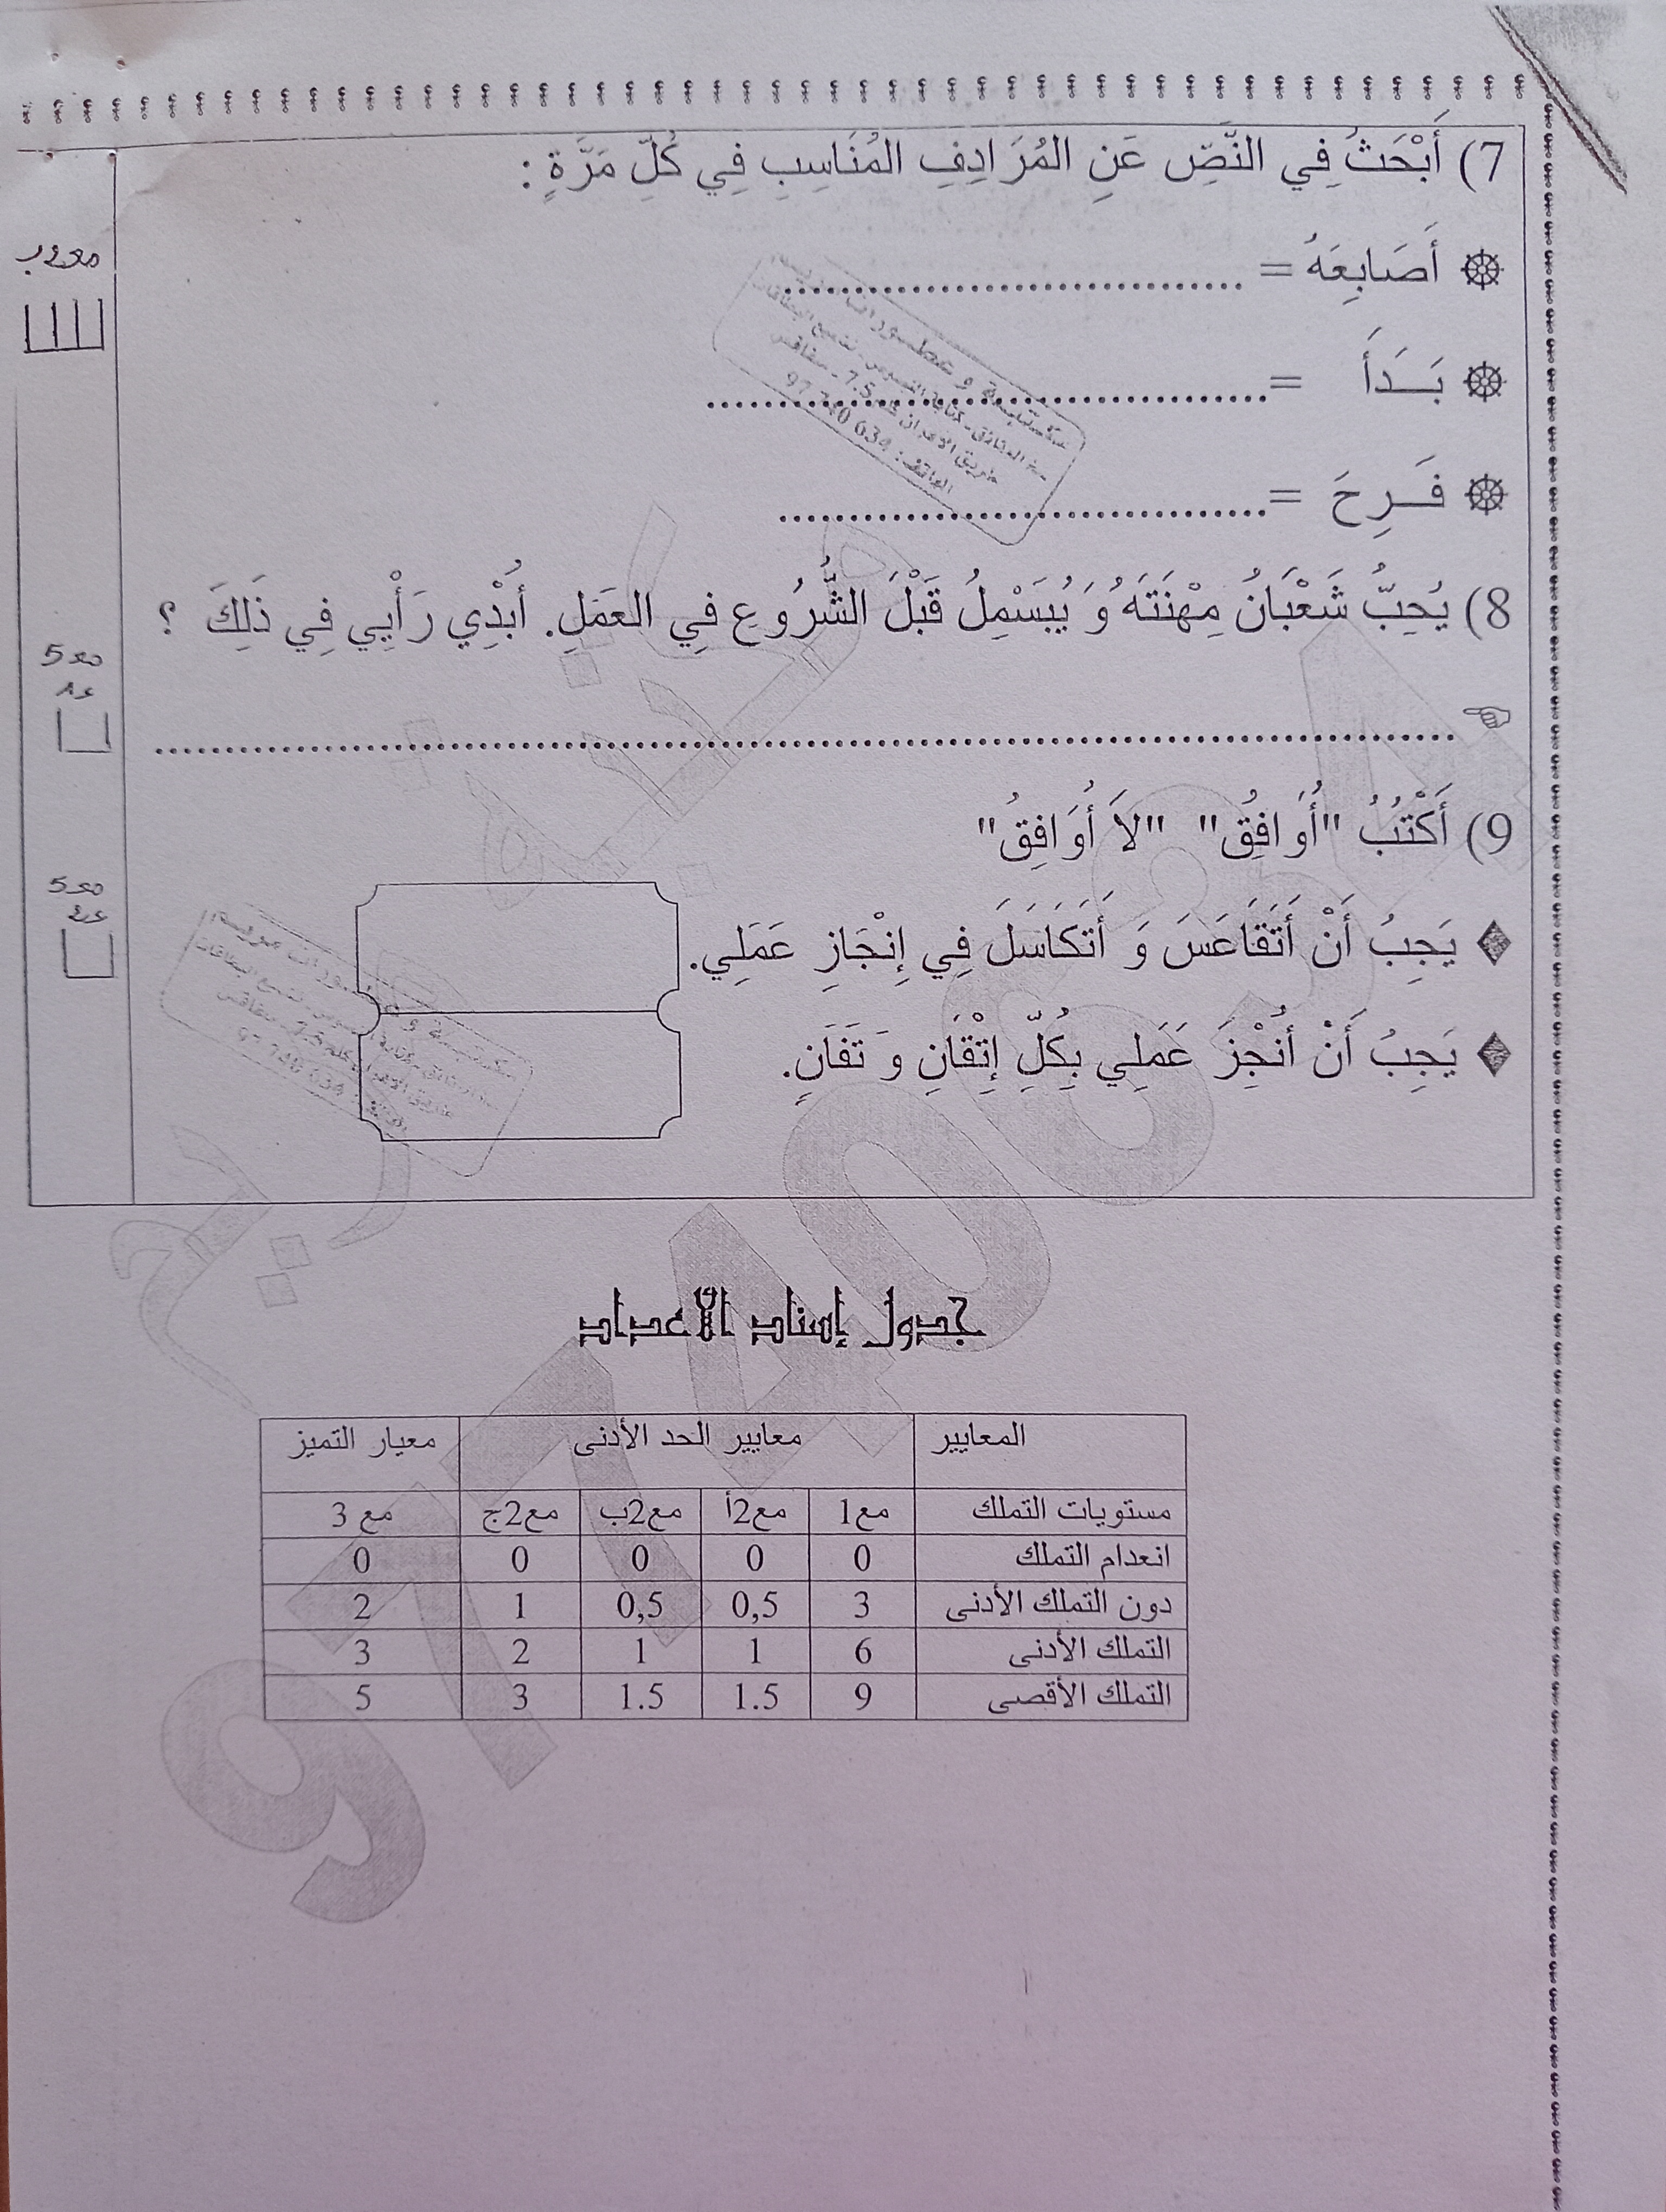 7) أَبْحَثُ فِي النَّصِّ عَنِ المُرَادِفِ المُنَاسِبِ فِي كُلِّ مَرَّةٍ :
مع2ب
أَصَابِعَهُ = ........................................
بَـدَأَ = ........................................
فَـرِحَ = ........................................
8) يُحِبُّ شَعْبَانُ مِهْنَتَهُ وَ يُبَسْمِلُ قَبْلَ الشُّرُوعِ فِي العَمَلِ. أُبْدِي رَأْيِي فِي ذَلِكَ ؟
........................................................................................
9) أَكْتُبُ "أُوَافِقُ" "لاَ أُوَافِقُ"
يَجِبُ أَنْ أَتَقَاعَسَ وَ أَتَكَاسَلَ فِي إِنْجَازِ عَمَلِي.
يَجِبُ أَنْ أُنْجِزَ عَمَلِي بِكُلِّ إِتْقَانِ وَ تَفَانٍ.
جدول إسناد الأعداد
المعايير معايير الحد الأدنى معيار التميز
مستويات التملك مع1 مع2أ مع2ب مع2ج مع 3
انعدام التملك 0 0 0 0 0
دون التملك الأدنى 3 0,5 0,5 1 2
التملك الأدنى 6 1 1 2 3
التملك الأقصى 9 1.5 1.5 3 5